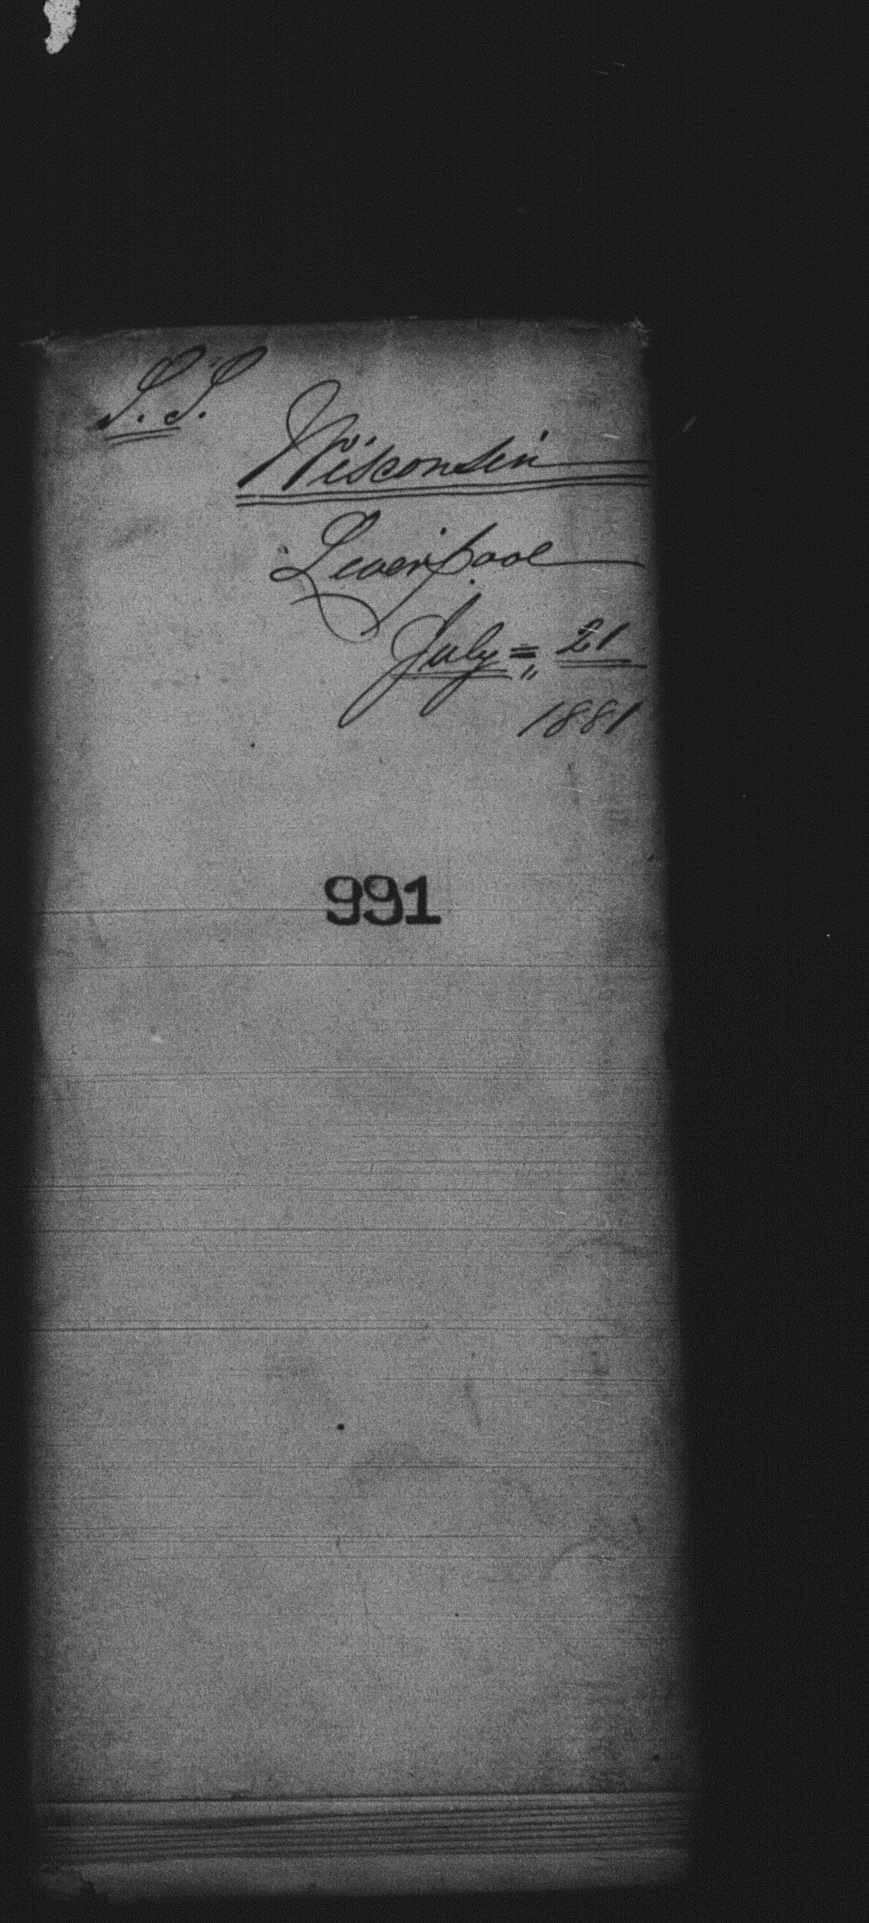 S. S.
Wisconsin
Liverpool
July = 21
1881
991